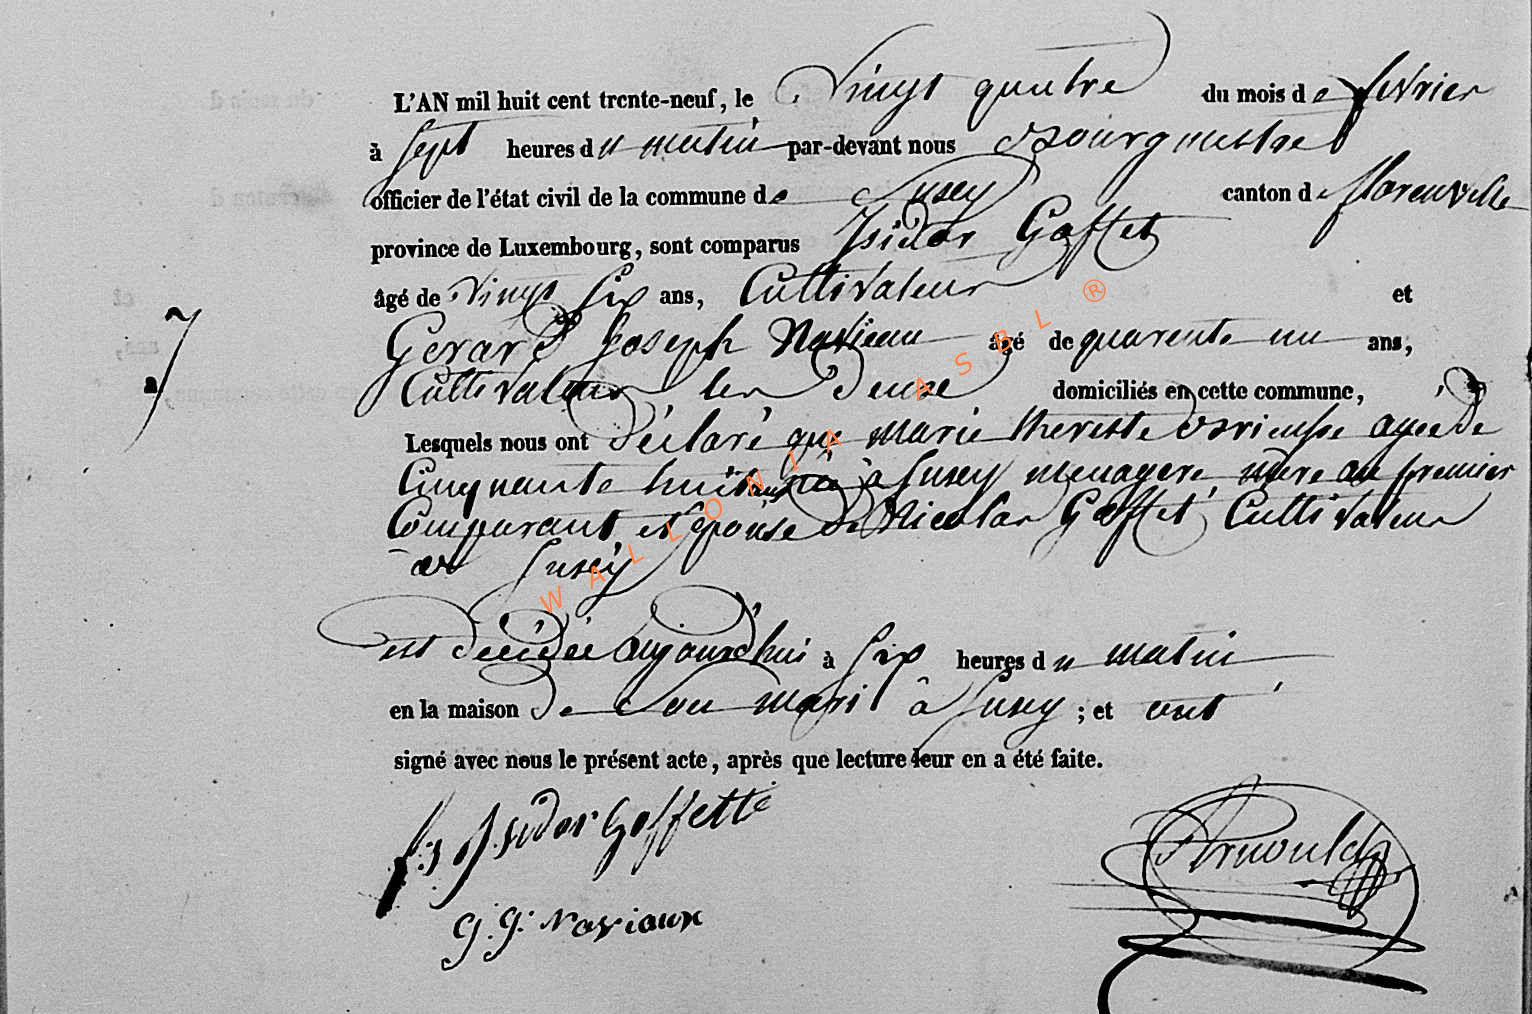 L'AN mil huit cent trente-neuf, le Vingt quatre du mois de fevrier
à Sept heures du matin par-devant nous Bourgmestre
officier de l'état civil de la commune de Suxey canton de florenville
province de Luxembourg, sont comparus Isidor Goffet
âgé de Vingt Six ans, Cultivateur et
7
Gerard Joseph Naviaux âgé de quarente un ans,
Cultivateur les deux domiciliés en cette commune,
Lesquels nous ont déclaré que marie therese agée de
Cinquante huit ans née à Suxey menagere mere au premier
Comparant et Epouse de Nicolas Goffet Cultivateur
a Suxey
est décédée aujourd'hui à Six heures du matin
en la maison de Son mari à Suxey ; et ont
signé avec nous le présent acte, après que lecture leur en a été faite.
Isidor Goffette
Arnould
G. J. Naviaux
WALLONIA ASBL ®